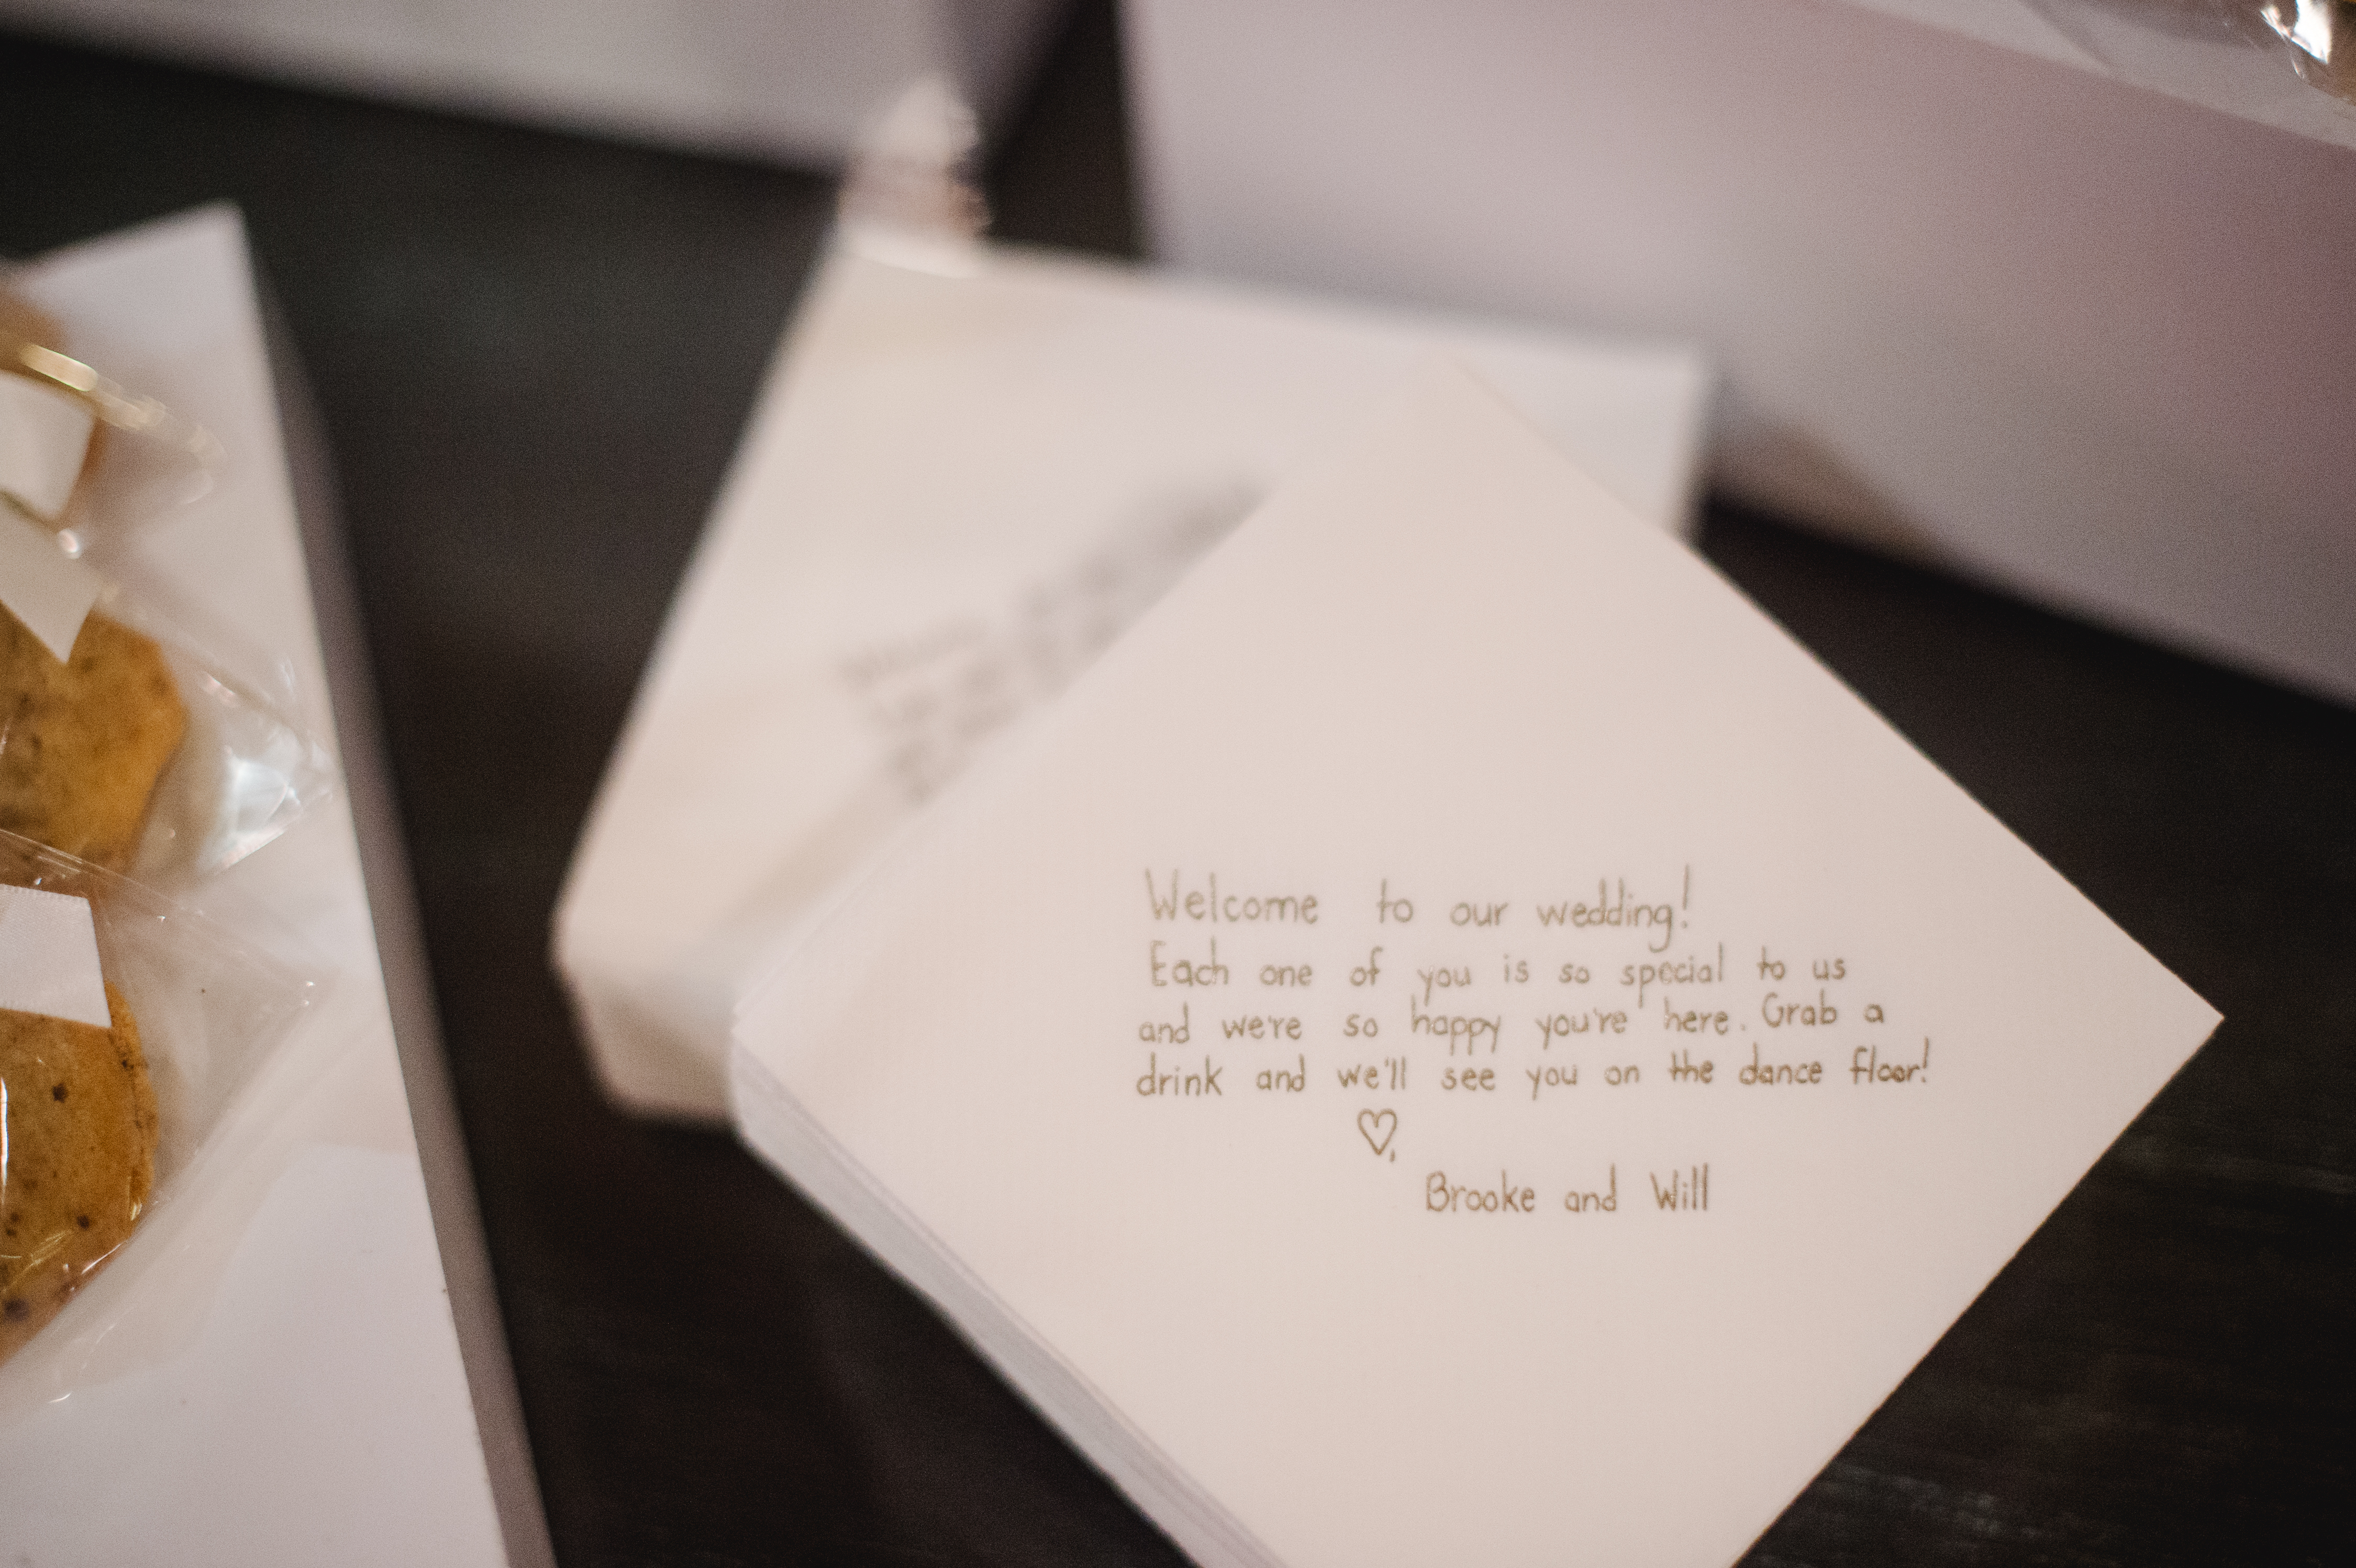 Welcome to our wedding!
Each one of you is so special to us
and we're so happy you're here. Grab a
drink and we'll see you on the dance floor!
♡,
Brooke and Will